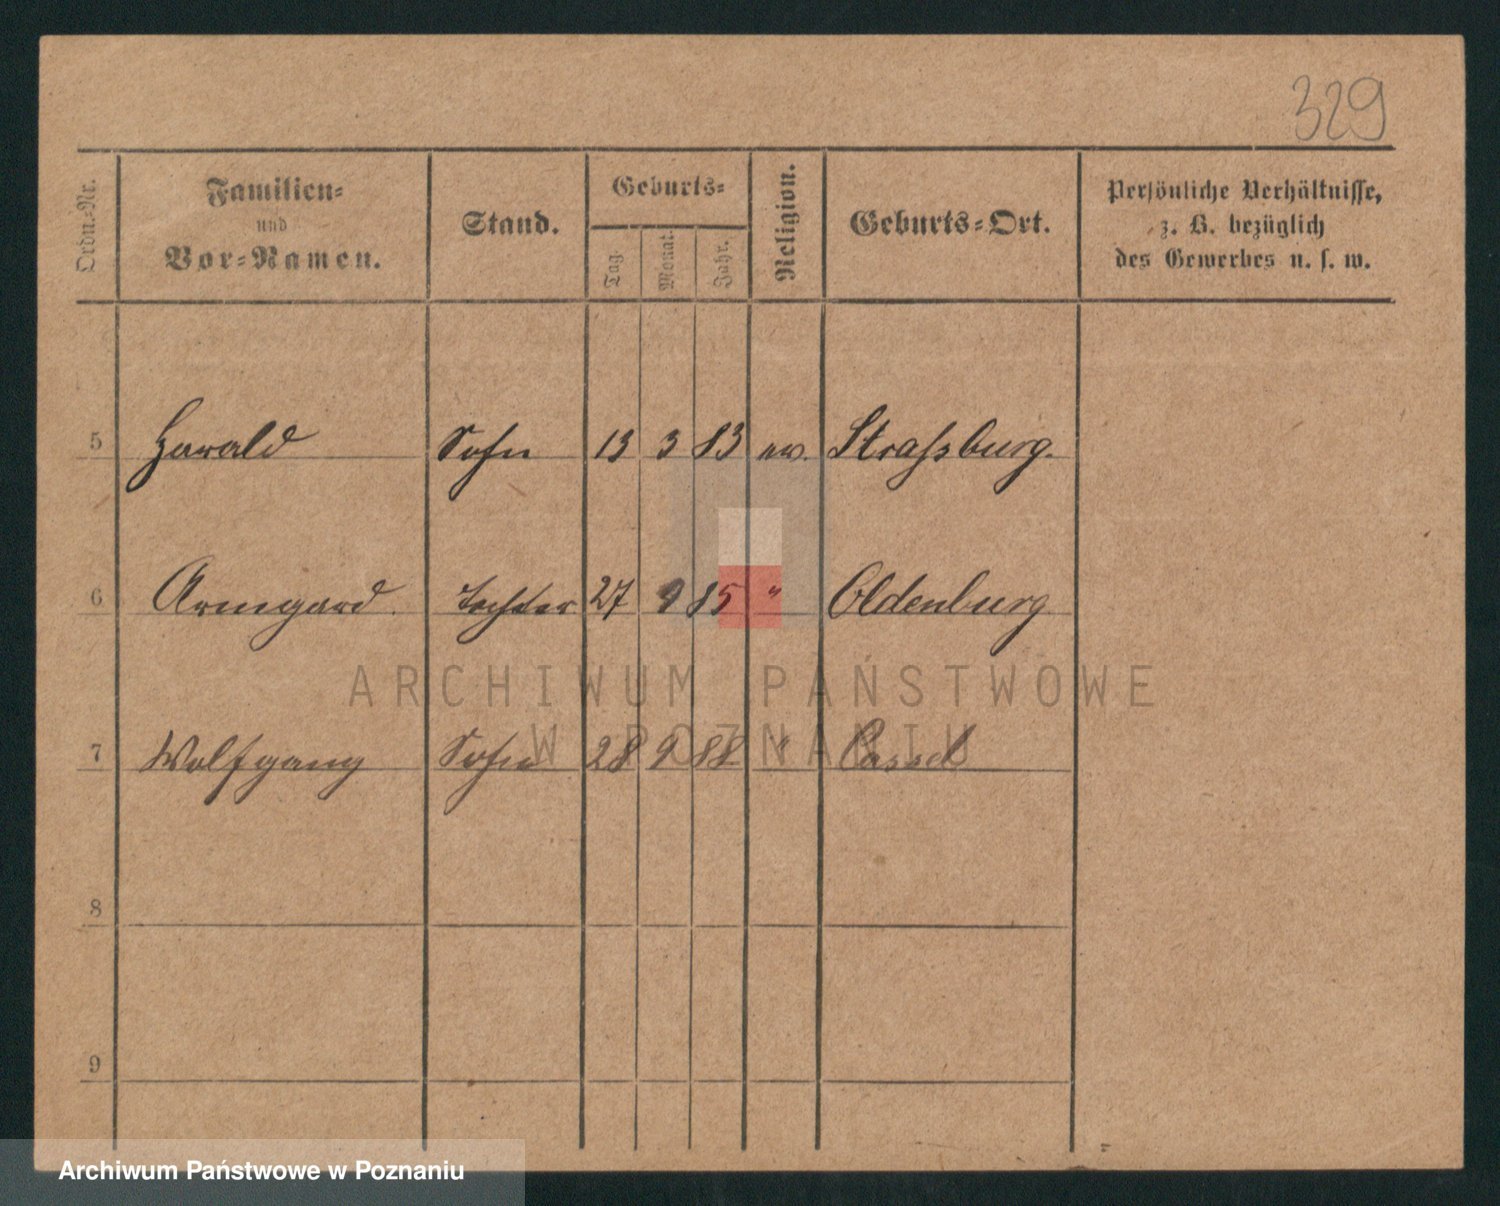 329
Ordn.=Nr.
Familien=
und
Vor=Namen.
Stand.
Geburts=
Tag.
Monat.
Jahr.
Religion.
Geburts=Ort.
Persönliche Verhältnisse,
z. B. bezüglich
des Gewerbes u. s. w.
5 Harald Sohn 13 3 83 ev. Straßburg.
6 Armgard. Tochter 27 9 85 " Oldenburg
ARCHIWUM PAŃSTWOWE
W POZNANIU
7 Wolfgang Sohn 28 9 88 " Cassel
8
9
Archiwum Państwowe w Poznaniu